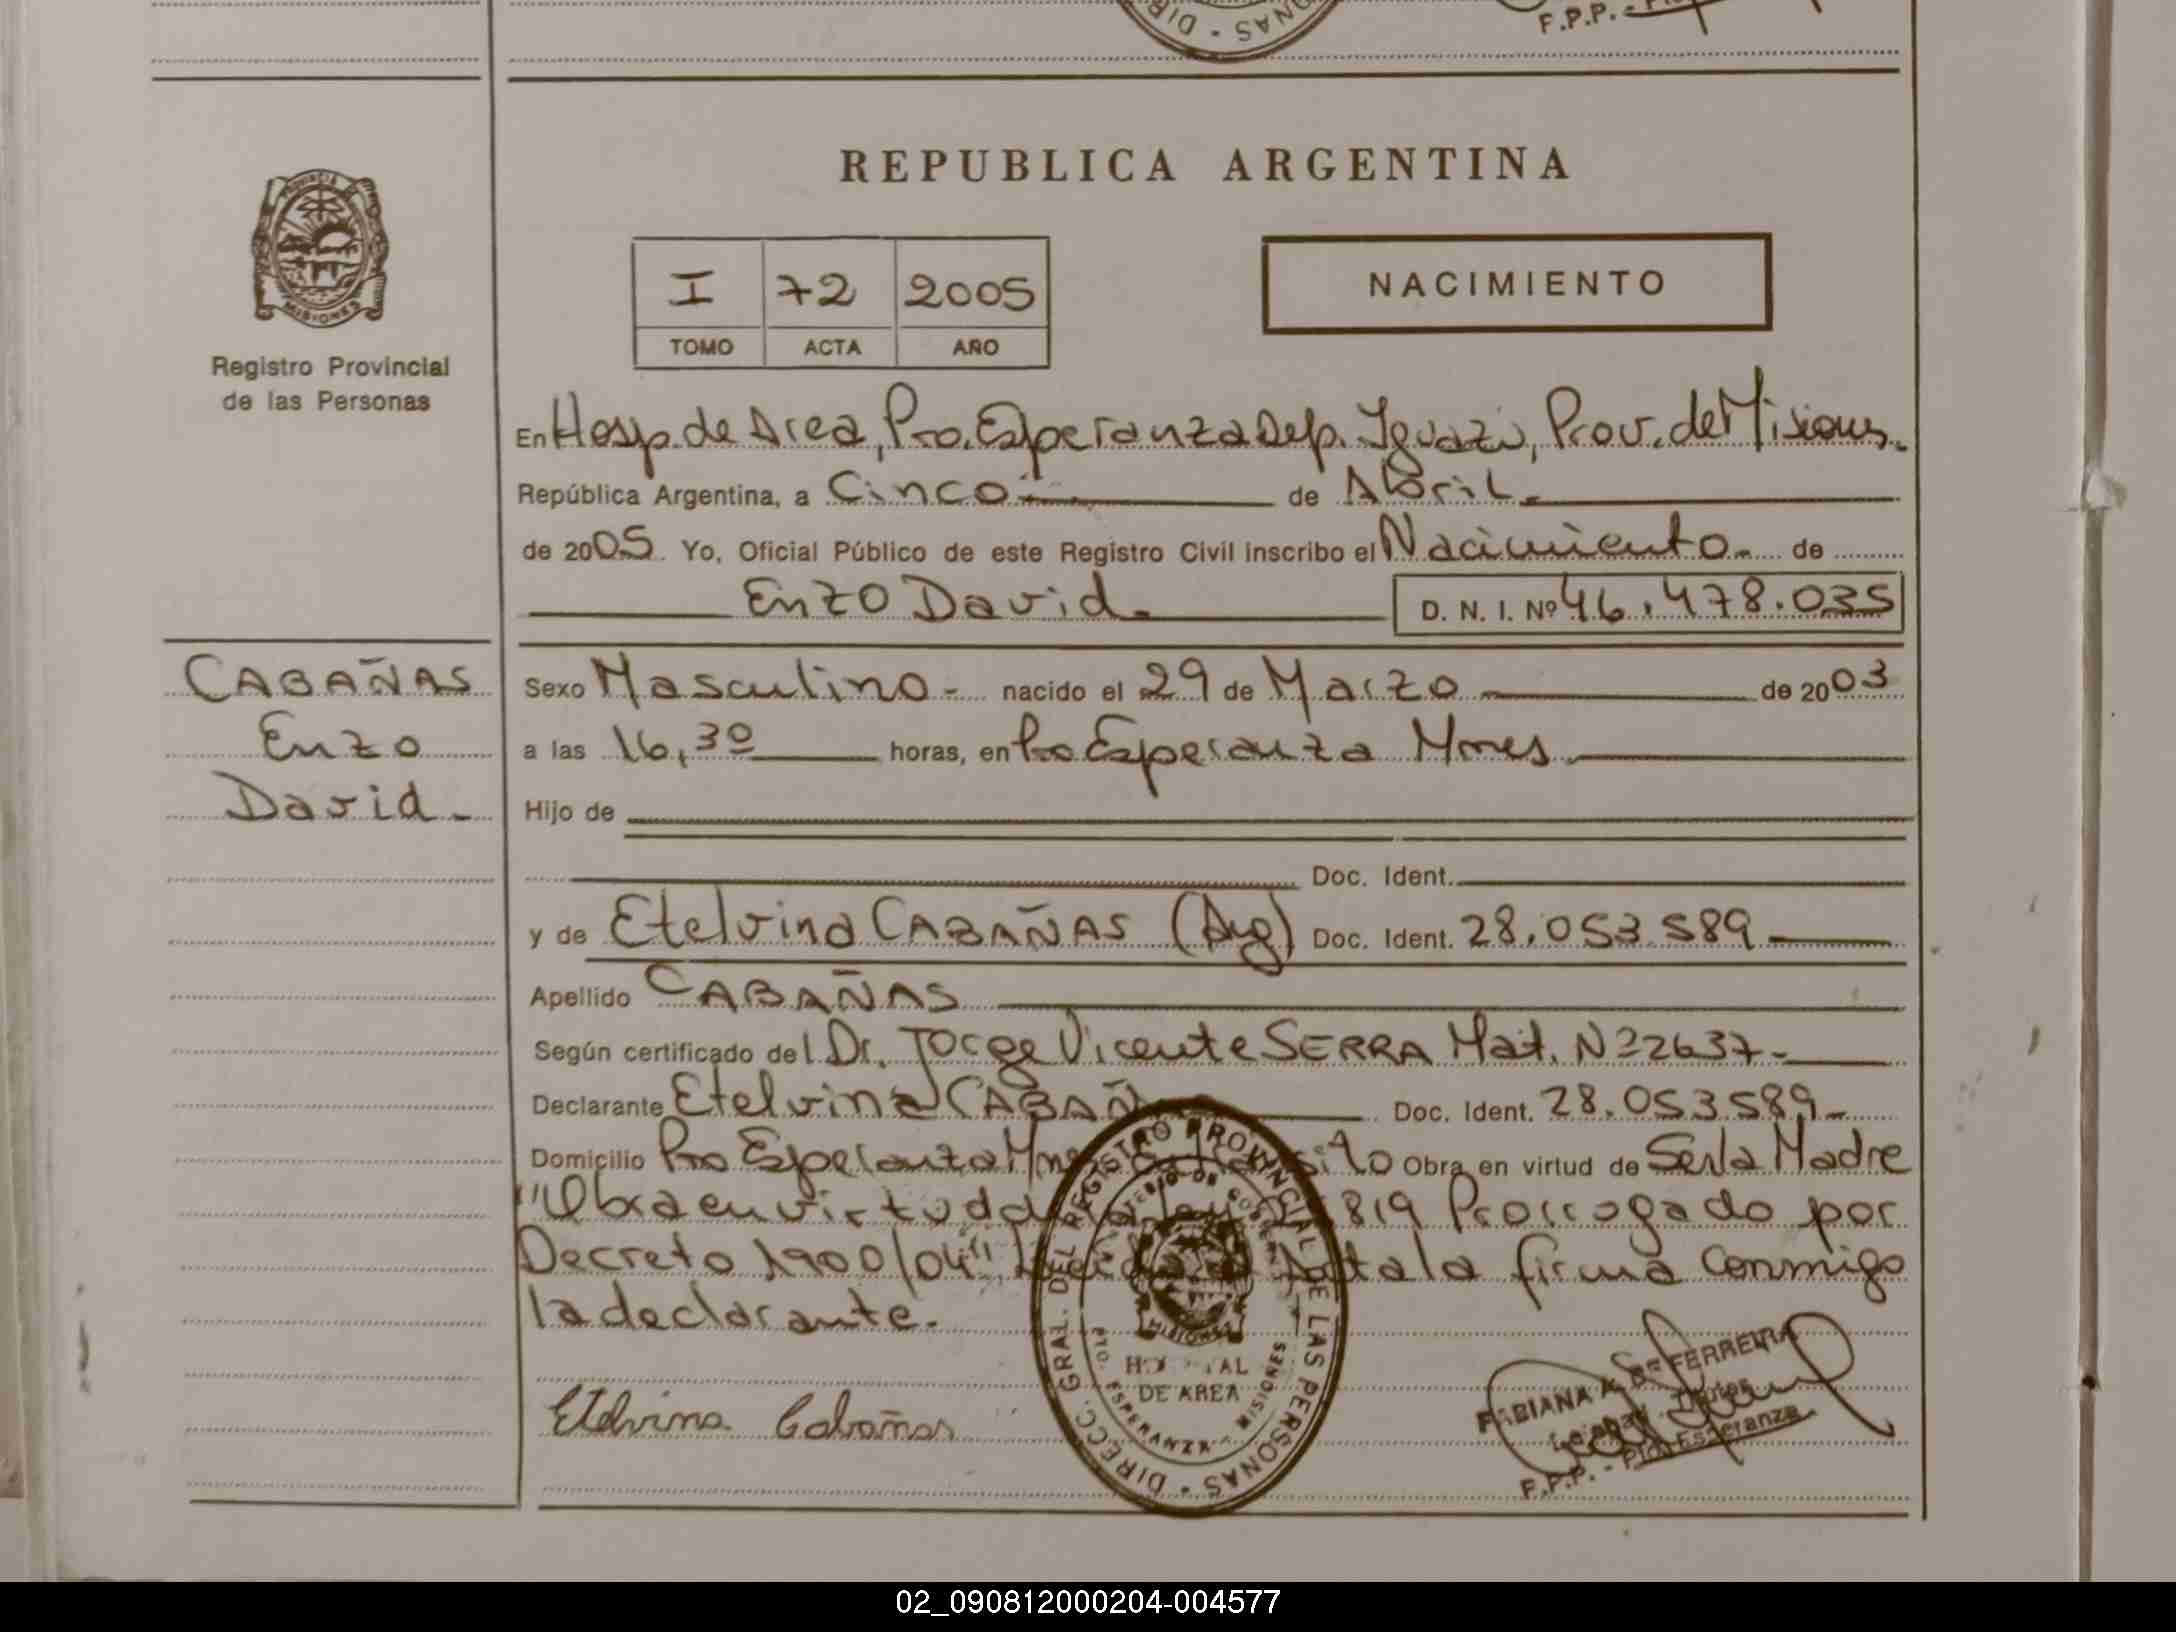 F.P.P. -
DIR · NAS
REPUBLICA ARGENTINA
PROVINCIA DE
MISIONES
Registro Provincial
de las Personas
I 72 2005
TOMO ACTA AÑO
NACIMIENTO
En Hosp. de Area, Pto. Esperanza Dep. Iguazú, Prov. de Misiones.
República Argentina, a Cinco.- de Abril.
de 2005. Yo, Oficial Público de este Registro Civil inscribo el Nacimiento.- de
Enzo David. D. N. I. Nº 46.478.035
CABAÑAS
Enzo
David.-
Sexo Masculino.- nacido el 29 de Marzo de 2003
a las 16,30 horas, en Pto Esperanza Mnes.
Hijo de
Doc. Ident.
y de Etelvina CABAÑAS (Arg) Doc. Ident. 28.053.589
Apellido CABAÑAS
Según certificado del Dr. Jorge Vicente SERRA Mat. Nº 2637.-
Declarante Etelvina CABAÑ Doc. Ident. 28.053589.-
Domicilio Pto Esperanza Obra en virtud de Ser la Madre
"Obra en virtud 819 Prorrogado por
Decreto 1900/04" firma conmigo
la declarante.
DIRECC. GRAL. DEL REGISTRO PROVINCIAL DE LAS PERSONAS ·
MISIONES
DE AREA
PTO. ESPERANZA - MISIONES
Etelvina Cabañas
FABIANA K. DE FERREIRA
F.P.P. - Pto. Esperanza
02_090812000204-004577